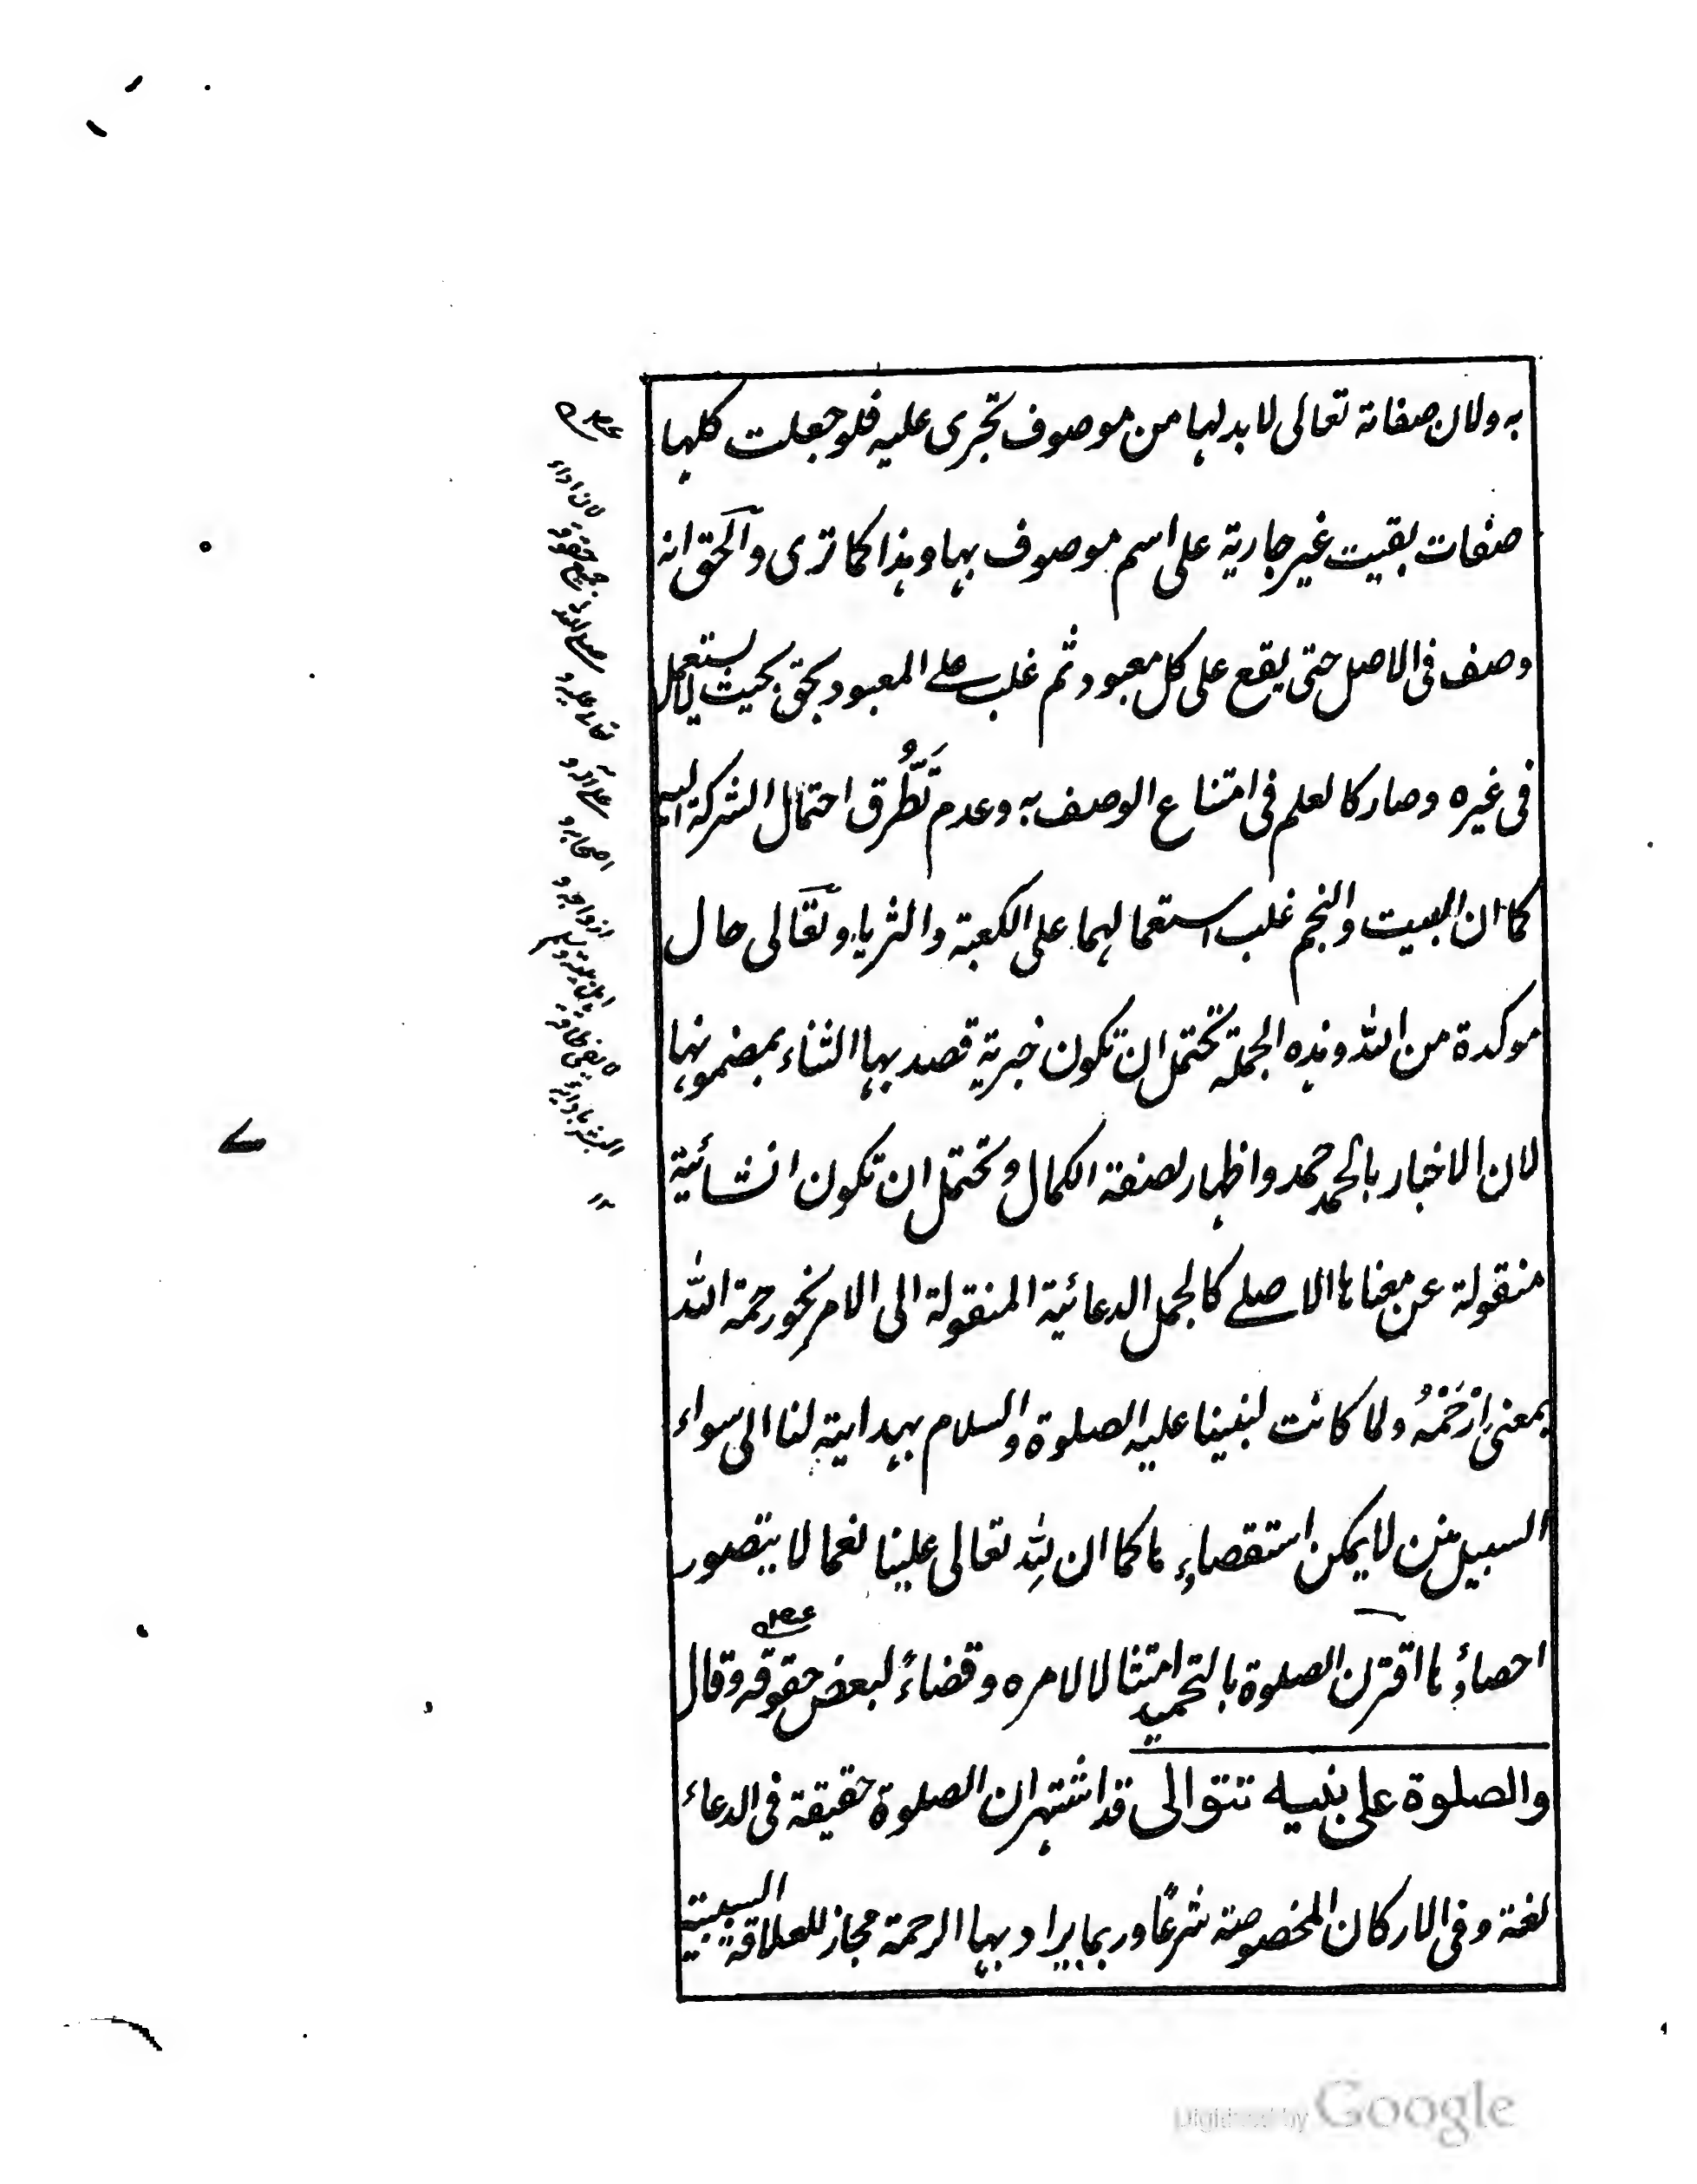 به ولان صفاته تعالى لا بد لها من موصوف تجرى عليه فلو جعلت كلها
صفات بقيت غير جارية على اسم موصوف بها وهذا كما ترى والحق انه
وصف فى الاصل حتى يقع على كل معبود ثم غلب على المعبود بحق بحيث لا يستعمل
فى غيره وصار كالعلم فى امتناع الوصف به وعدم تَطَّرُقِ احتمال الشركة اليه
كما ان البيت والنجم غلب استعمالهما على الكعبة والثريا وتعالى حال
موكدة من الله وهذه الجملة تحتمل ان تكون خبرية قصد بها الثناء بمضمونها
لان الاخبار بالحمد حمد واظهار لصفة الكمال وتحتمل ان تكون انشائية
منقولة عن معناها الاصلے كالجمل الدعائية المنقولة الى الامر نحو رحمة الله
بمعنى اِرْحَمْهُ ولما كانت لنبينا عليه الصلوة والسلام بهدايته لنا الى سواء
السبيل منن لا يمكن استقصاءها كما ان لله تعالى علينا نعما لا يتصور
احصاؤها اقترن الصلوة بالتحميد امتثالا لامره وقضاءً لبعض حقوقه وقال
والصلوة على نبيه تتوالى قد اشتهر ان الصلوة حقيقة فى الدعاء
لغة وفى الاركان المخصوصة شرعًا وربما يراد بها الرحمة مجاز للعلاقة السببية
لان اداء
جميع حقوقه
صلى الله
تعالے عليه و
على آله و
اصحابه و
ازواجه و
اهل بيته وسلم
لا يفى طاقة
البشر بادائه
۱۲
Digitized by Google